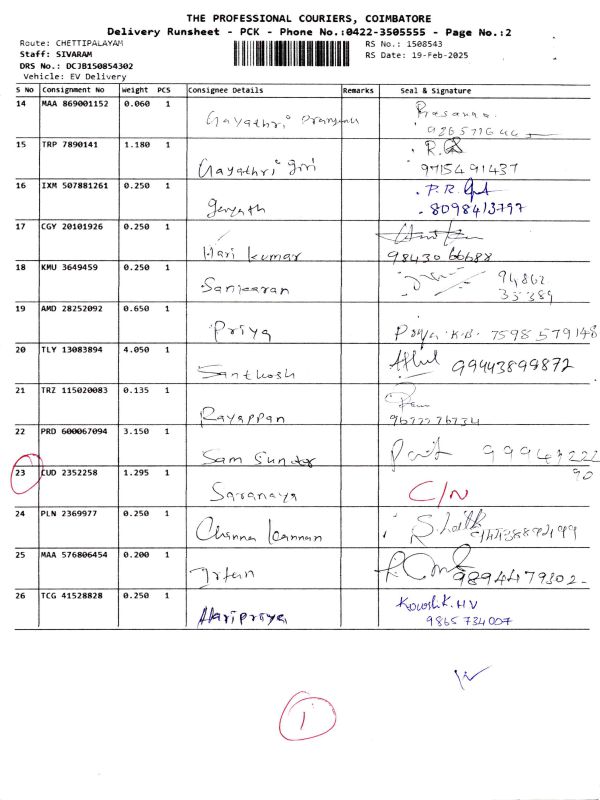 THE PROFESSIONAL COURIERS, COIMBATORE
Delivery Runsheet - PCK - Phone No.:0422-3505555 - Page No.:2
Route: CHETTIPALAYAM
RS No.: 1508543
Staff: SIVARAM
RS Date: 19-Feb-2025
DRS No.: DCJB150854302
Vehicle: EV Delivery
S No Consignment No Weight PCS Consignee Details Remarks Seal & Signature
14 MAA 869001152 0.060 1 Gayathri
15 TRP 7890141 1.180 1 Gayathri giri 9715491437
16 IXM 507881261 0.250 1 P.R. 8098413797
17 CGY 20101926 0.250 1 Hari kumar 9843066688
18 KMU 3649459 0.250 1 Sankaran 94862
35389
19 AMD 28252092 0.650 1 Priya Priya K.B. 7598579148
20 TLY 13083894 4.050 1 Santhosh 99443899872
21 TRZ 115020083 0.135 1 Rayappan
22 PRD 600067094 3.150 1 Sam Sundar 99943222
90
23 CUD 2352258 1.295 1 Saranaya C/N
24 PLN 2369977 0.250 1 Channa kannan
25 MAA 576806454 0.200 1 Irfan 9894479302
26 TCG 41528828 0.250 1 Haripriya Kowshik.HV
9865734007
1